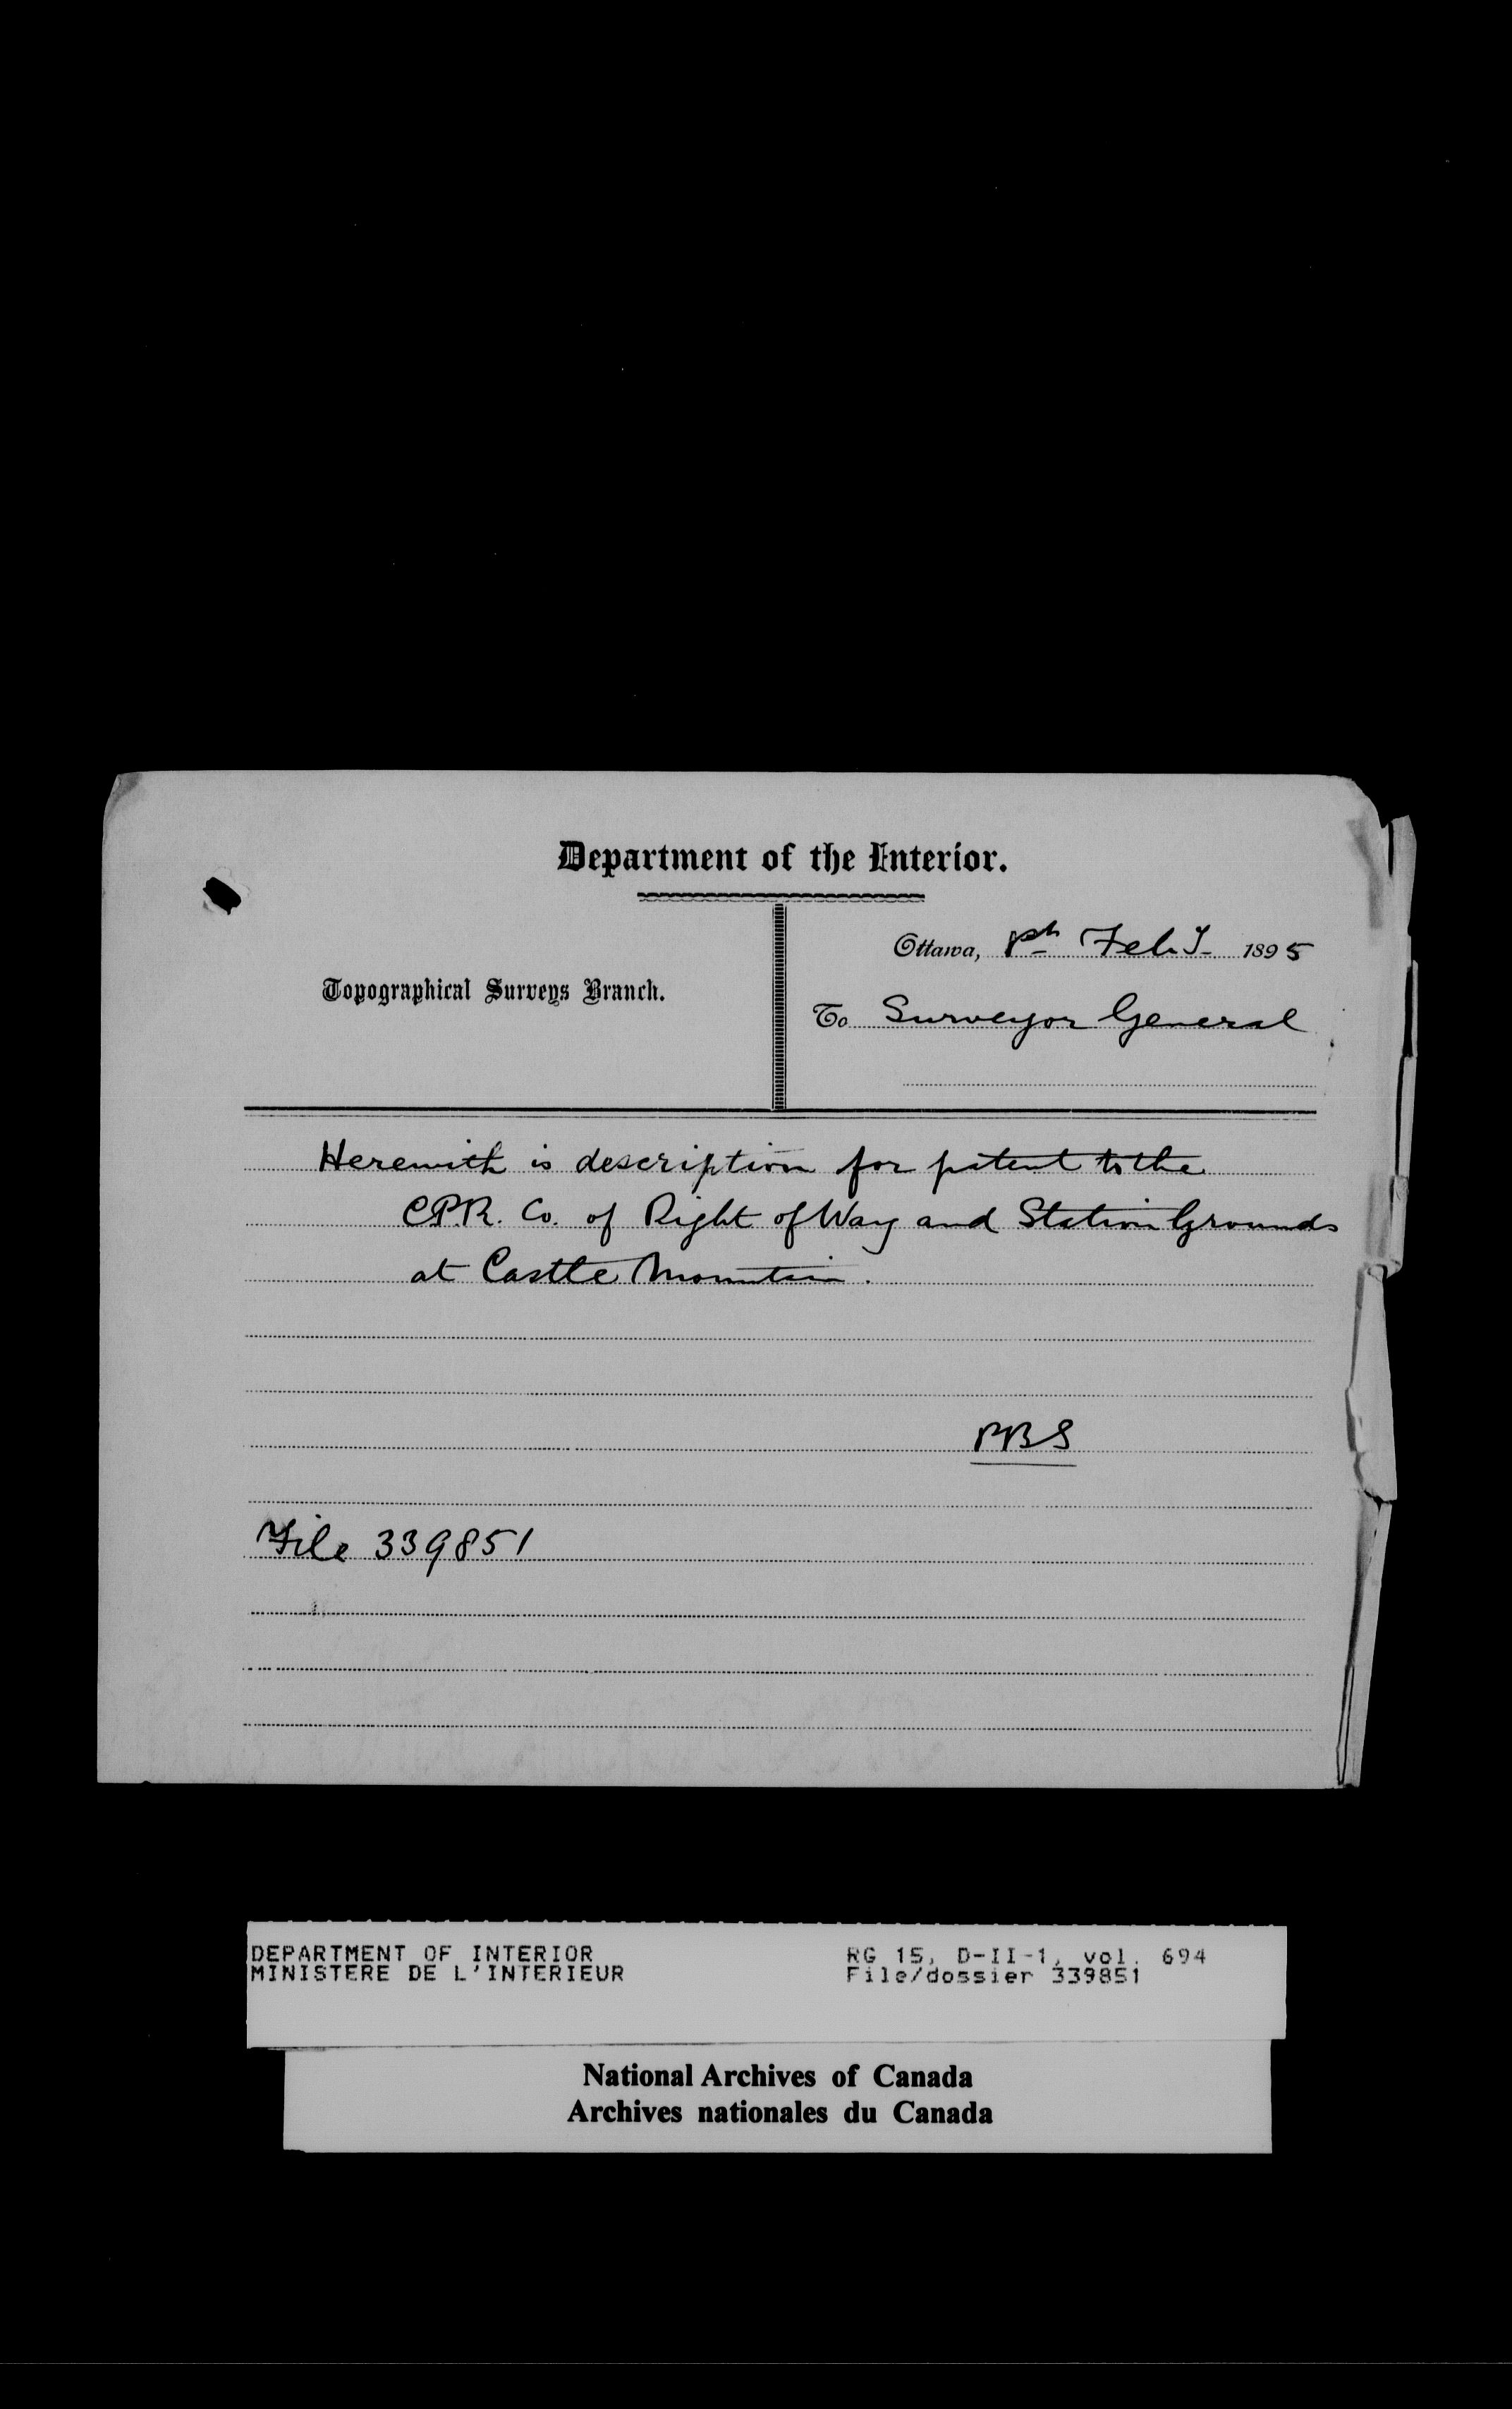 Department of the Interior.
Topographical Surveys Branch.
Ottawa, 8th Feby 1895
To Surveyor General
Herewith is description for patent to the
C.P.R. Co. of Right of Way and Station Grounds
at Castle Mountain.
PBS
File 339851
DEPARTMENT OF INTERIOR
MINISTERE DE L'INTERIEUR
RG 15, D-II-1, vol. 694
File/dossier 339851
National Archives of Canada
Archives nationales du Canada